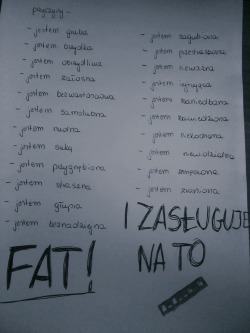 przyczyny -
- jestem gruba
- jestem brzydka
- jestem obrzydliwa
- jestem żałosna
- jestem bezwartościowa
- jestem samolubna
- jestem nudna
- jestem suką
- jestem przygnębiona
- jestem straszna
- jestem głupia
- jestem beznadziejna
FAT!
- jestem zagubiona
- jestem przestraszona
- jestem nieważna
- jestem
- jestem zaniedbana
- jestem zawiedziona
- jestem niekochana
- jestem niewidzialna
- jestem zmęczona
- jestem zraniona
I ZASŁUGUJĘ
NA TO